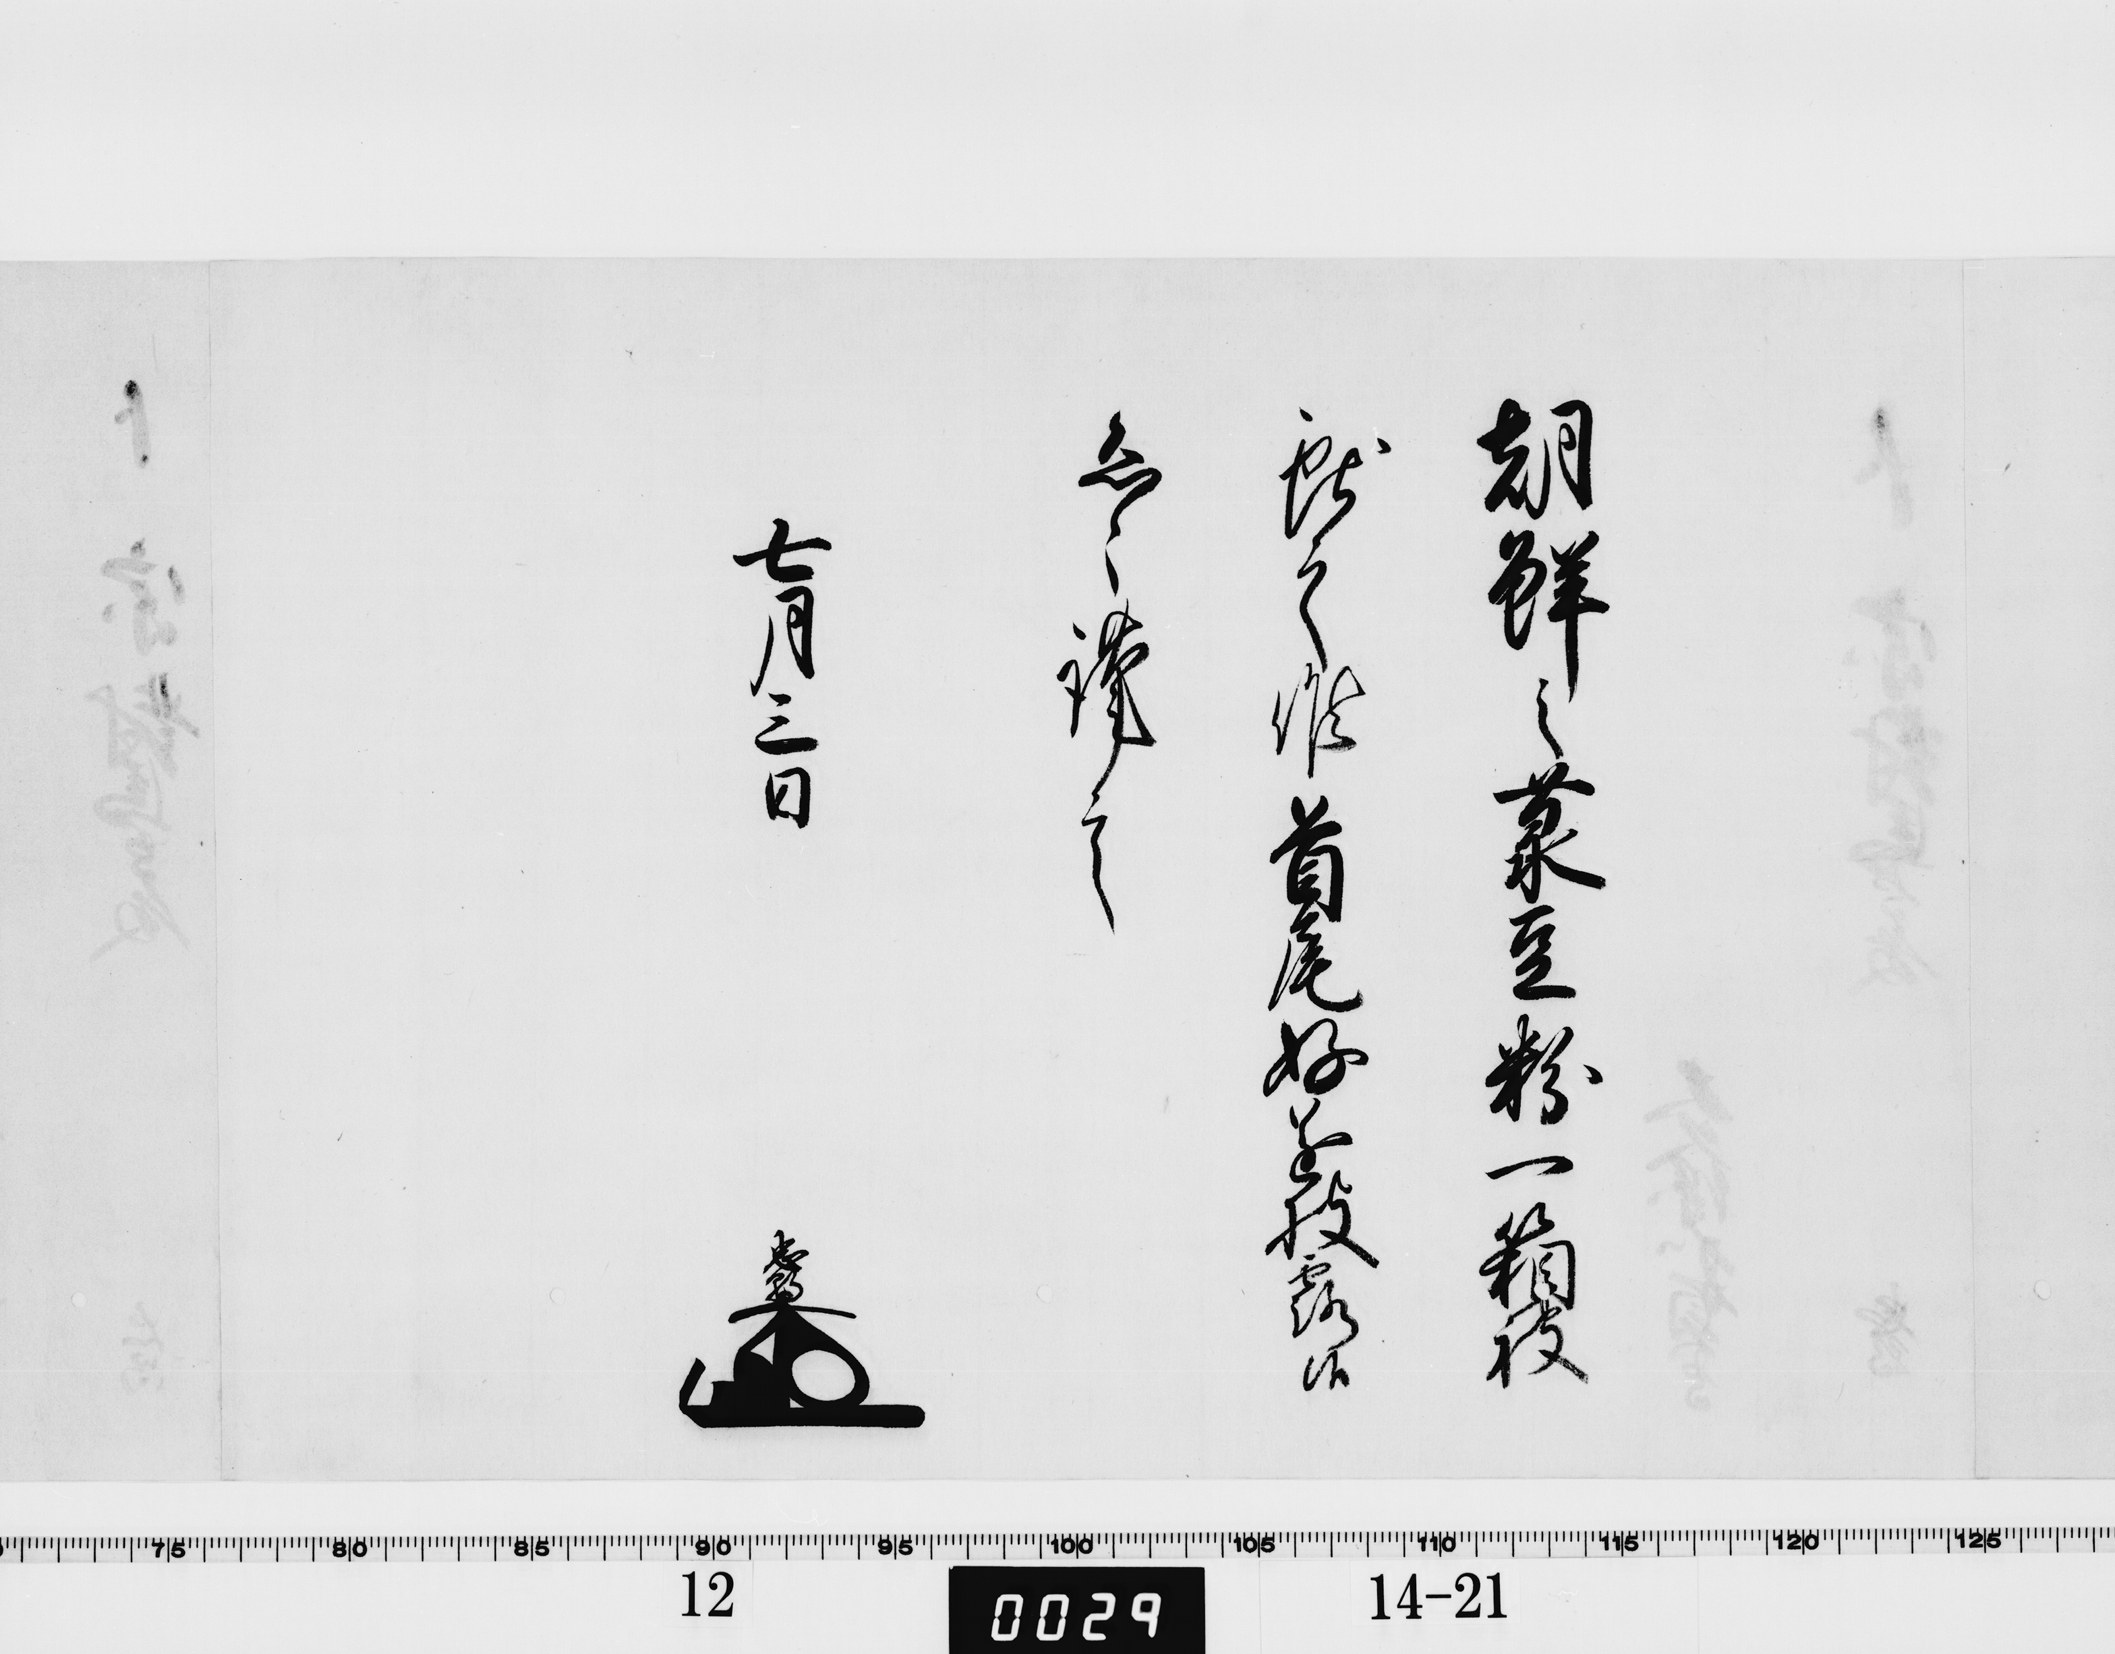 朝鮮之菉豆粉一箱被
献之候首尾好遂披露候
恐々謹言
七月三日
75 80 85 90 95 100 105 110 115 120 125
12 0029 14-21